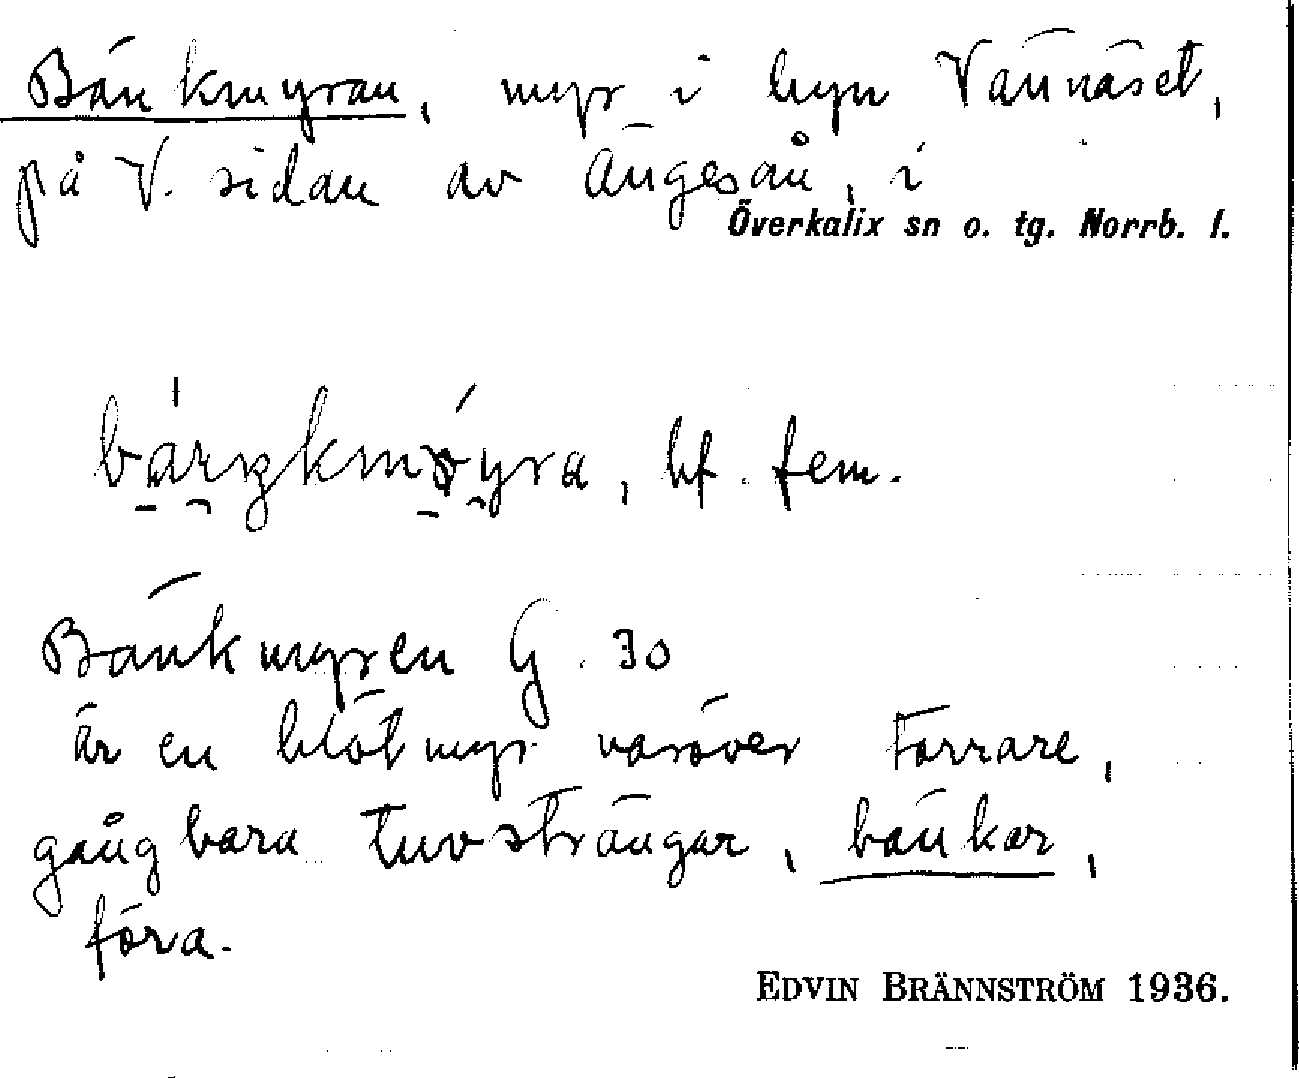 Bänkmyran, myr i byn Vännäset,
på V. sidan av Ängesån, i
Överkalix sn o. tg. Norrb. l.
bf. fem.
Bänkmyren G. 30
är en blöt myr varöver torrare,
gångbara tuvsträngar, bänkar,
föra.
EDVIN BRÄNNSTRÖM 1936.